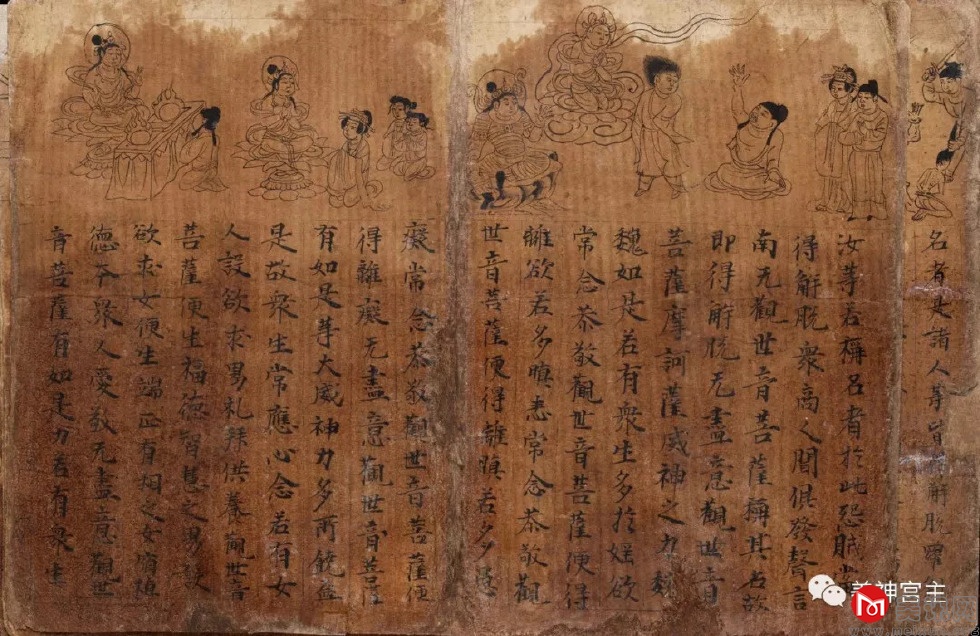 名者是諸人等皆得解脫
汝等若稱名者於此怨賊當
得解脫衆商人聞俱發聲言
南无觀世音菩薩稱其名故
即得解脫无盡意觀世音
菩薩摩訶薩威神之力巍
巍如是若有衆生多於婬欲
常念恭敬觀世音菩薩便得
離欲若多瞋恚常念恭敬觀
世音菩薩便得離瞋若多愚
癡常念恭敬觀世音菩薩便
得離癡无盡意觀世音菩薩
有如是等大威神力多所饒益
是故衆生常應心念若有女
人設欲求男礼拜供養觀世音
菩薩便生福德智慧之男設
欲求女便生端正有相之女宿殖
德本衆人愛敬无盡意觀世
音菩薩有如是力若有衆生
美神宫主